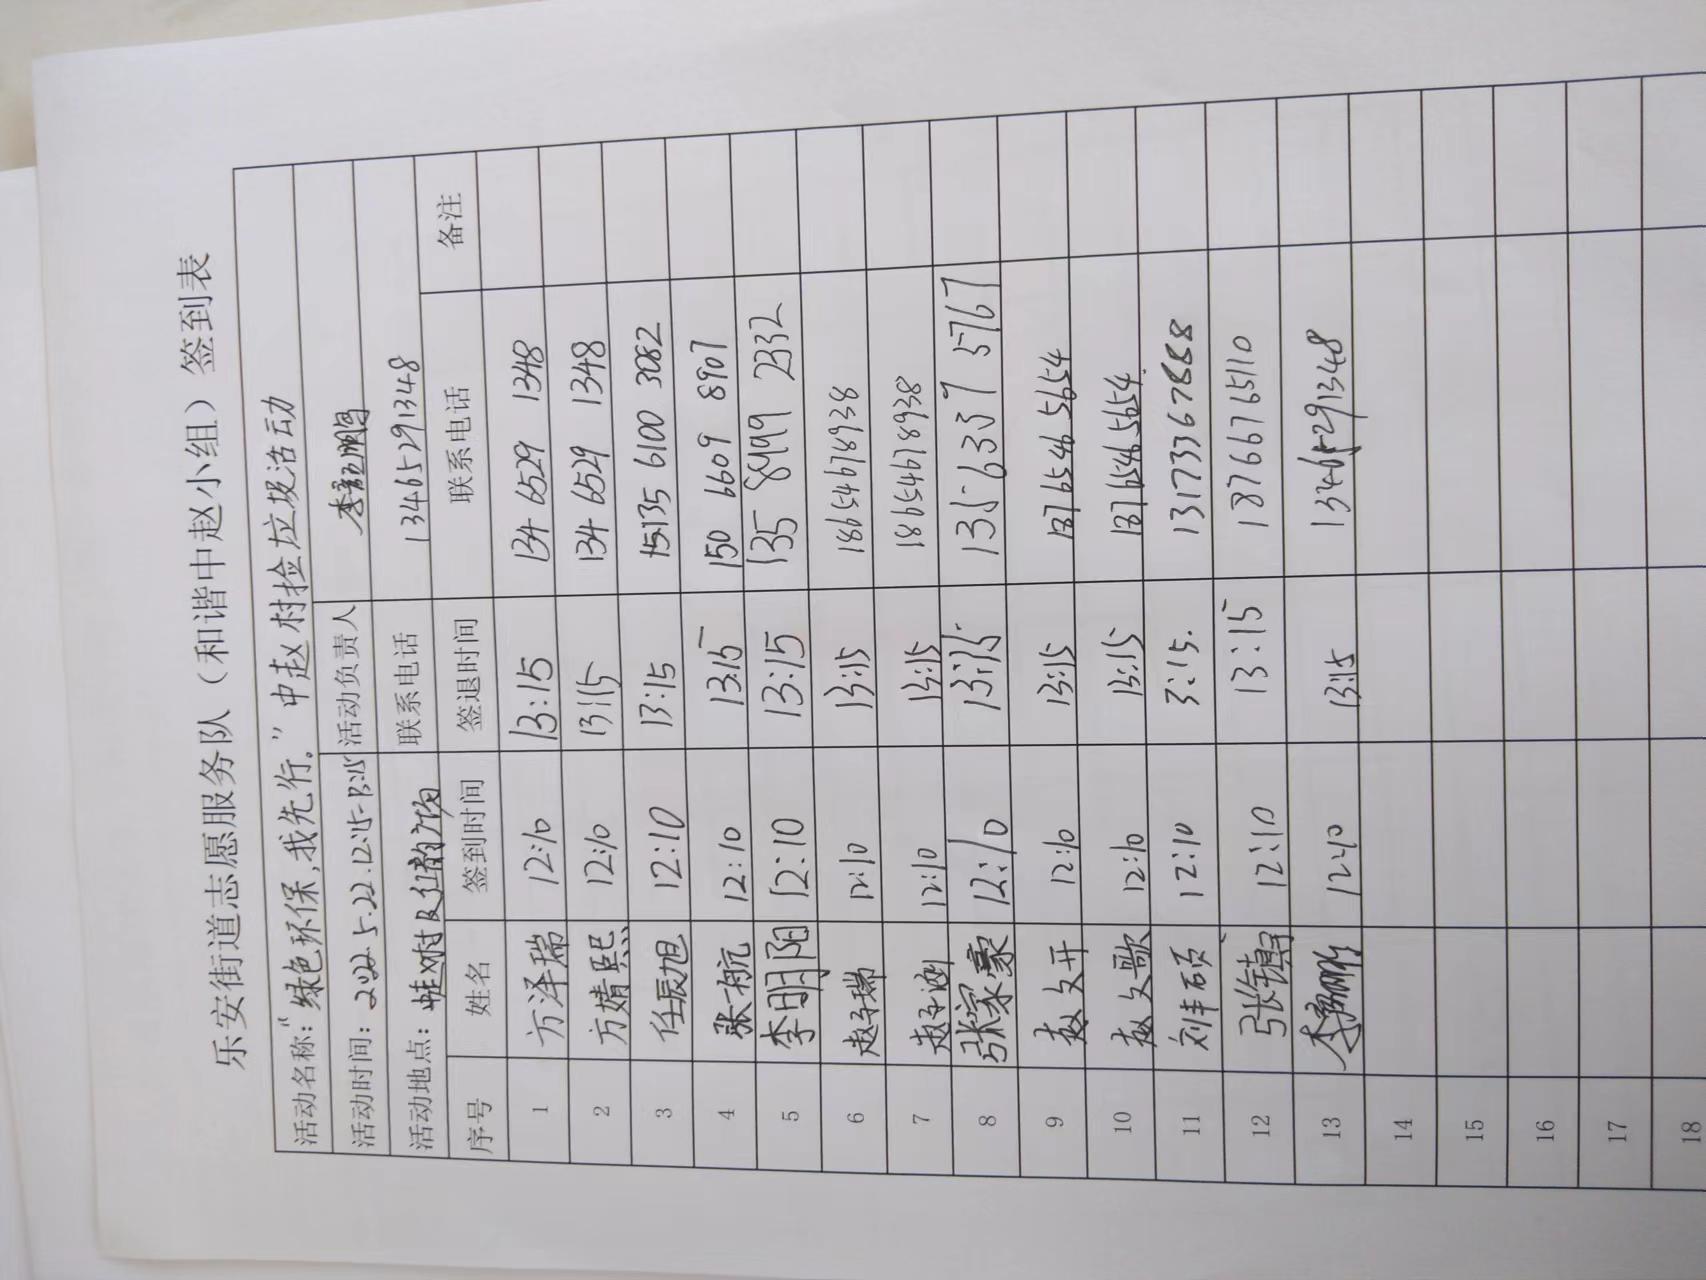 乐安街道志愿服务队（和谐中赵小组）签到表
活动名称：“绿色环保，我先行。”中赵村捡垃圾活动
活动时间：2022.5.22.12:15-13:15 活动负责人
活动地点： 联系电话 13465291348
序号 姓名 签到时间 签退时间 联系电话 备注
1 方泽瑞 12:10 13:15 134 6529 1348
2 方婧熙 12:10 13:15 134 6529 1348
3 任辰旭 12:10 13:15 15135 6100 3082
4 张一航 12:10 13:15 150 6609 8907
5 李明阳 12:10 13:15 135 8999 2332
6 赵子瑞 12:10 13:15 18654678938
7 赵子 12:10 13:15 18654678938
8 张家豪 12:10 13:15 135 6337 5767
9 赵文开 12:10 13:15 187 6546 5654
10 赵文歌 12:10 13:15 187 6546 5654
11 刘丰硕 12:10 3:15. 13173367888
12 12:10 13:15 18766765110
13 12:10 13:15 13465291348
14
15
16
17
18